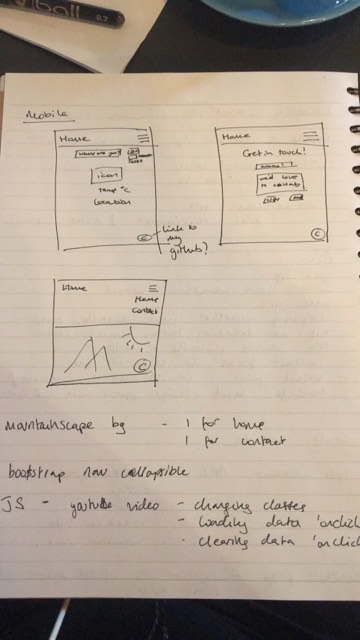 ball 0.7
Mobile
Home
where are you?
icon
Temp °C
Location
C
Link to
my
github?
Home
Get in touch!
we'd love
to collab
C
Home
Home
Contact
C
mountainscape bg - 1 for home
1 for contact
bootstrap nav collapsible
JS - youtube video - changing classes
- loading data 'onclick
- clearing data 'onclick